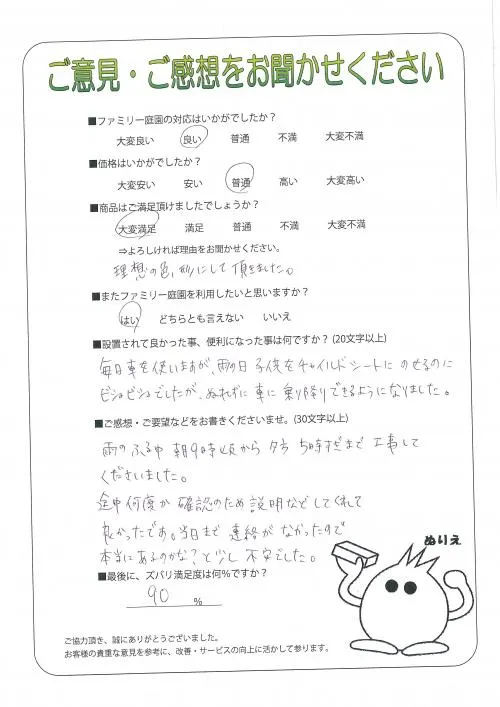 ご意見・ご感想をお聞かせください
■ファミリー庭園の対応はいかがでしたか？
大変良い 良い 普通 不満 大変不満
■価格はいかがでしたか？
大変安い 安い 普通 高い 大変高い
■商品はご満足頂けましたでしょうか？
大変満足 満足 普通 不満 大変不満
⇒よろしければ理由をお聞かせください。
理想の色、形にして頂きました。
■またファミリー庭園を利用したいと思いますか？
はい どちらとも言えない いいえ
■設置されて良かった事、便利になった事は何ですか？(20文字以上)
毎日車を使いますが、雨の日 子供をチャイルドシートに のせるのに
ビショビショでしたが、ぬれずに 車に 乗り降りできるようになりました。
■ご感想・ご要望などをお書きくださいませ。(30文字以上)
雨のふる中 朝9時頃から 夕方 5時すぎまで 工事して
くださいました。
途中 何度か 確認のため 説明など してくれて
良かったです。当日まで 連絡が なかったので
本当にあるのかな？と少し 不安でした。
■最後に、ズバリ満足度は何%ですか？
90 %
ぬりえ
ご協力頂き、誠にありがとうございました。
お客様の貴重な意見を参考に、改善・サービスの向上に活かして参ります。